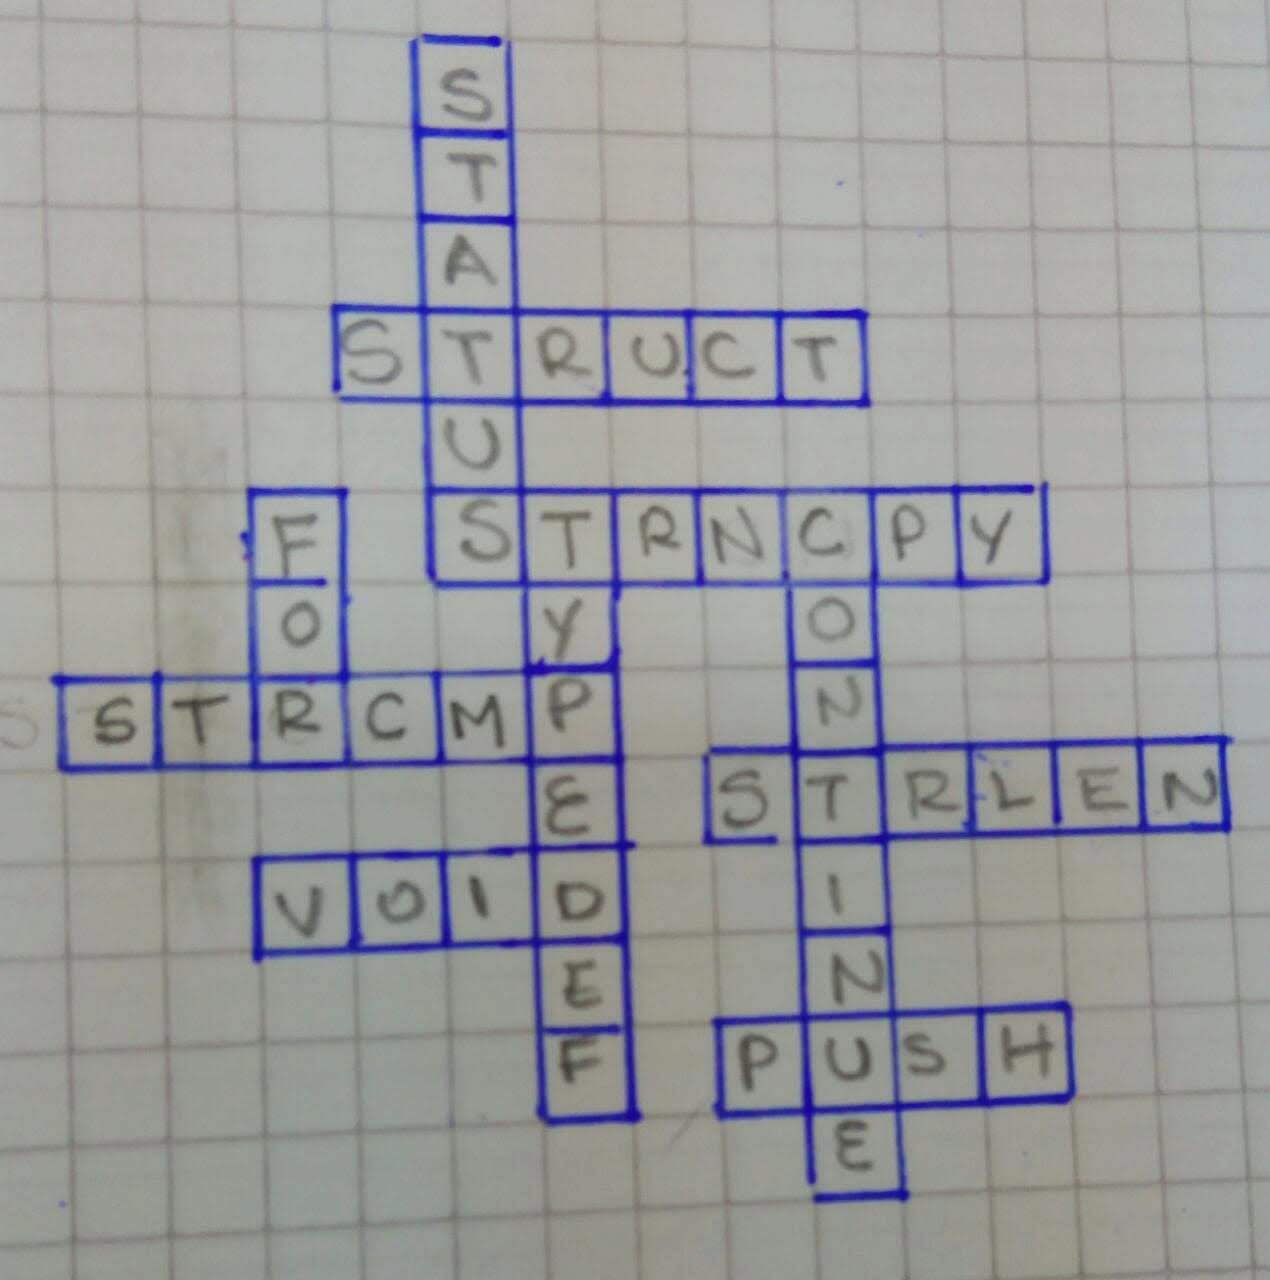 S
T
A
STRUCT
U
STRNCPY
F
O Y O
N
S STRCMP
E STRLEN
VOID I
E N
F PUSH
E